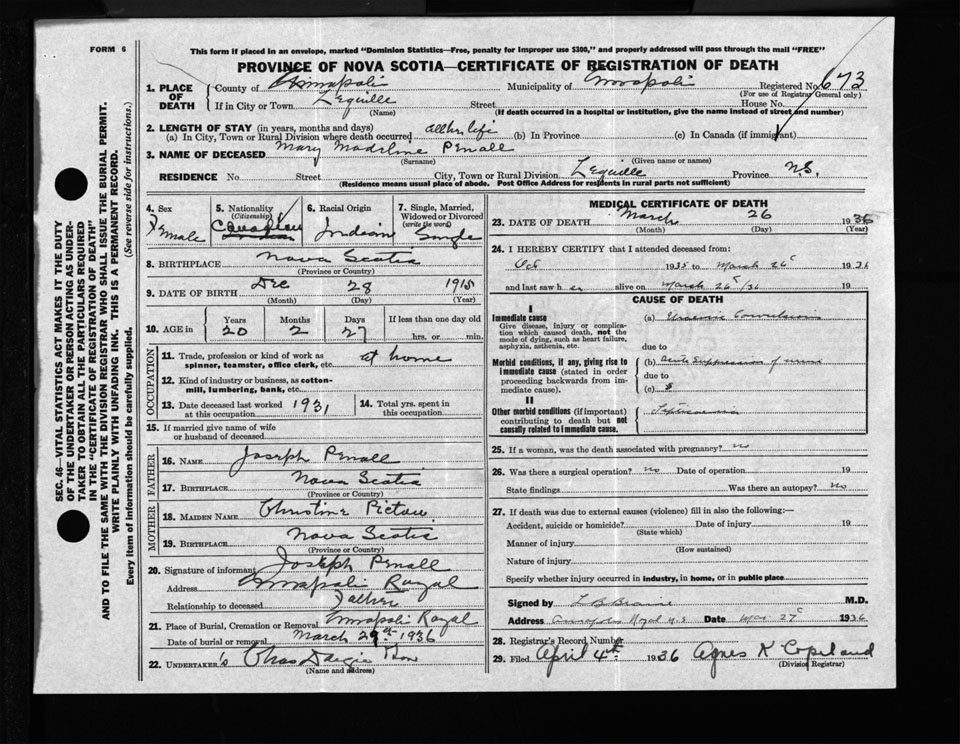 FORM 6
This form if placed in an envelope, marked "Dominion Statistics—Free, penalty for improper use $300," and properly addressed will pass through the mail "FREE"
PROVINCE OF NOVA SCOTIA—CERTIFICATE OF REGISTRATION OF DEATH
1. PLACE OF DEATH
County of Annapolis Municipality of Annapolis Registered No. 673
(For use of Registrar General only)
If in City or Town Lequille Street House No.
(Name) (If death occurred in a hospital or institution, give the name instead of street and number)
2. LENGTH OF STAY (in years, months and days)
(a) In City, Town or Rural Division where death occurred all her life (b) In Province (c) In Canada (if immigrant)
3. NAME OF DECEASED Mary Madeline Penall
(Surname) (Given name or names)
RESIDENCE No. Street City, Town or Rural Division Lequille Province N.S.
(Residence means usual place of abode. Post Office Address for residents in rural parts not sufficient)
4. Sex Female
5. Nationality (Citizenship) Canadian
6. Racial Origin Indian
7. Single, Married, Widowed or Divorced (write the word) Single
8. BIRTHPLACE Nova Scotia
(Province or Country)
9. DATE OF BIRTH Dec 28 1915
(Month) (Day) (Year)
10. AGE in Years 20 Months 2 Days 27 If less than one day old hrs. or min.
OCCUPATION
11. Trade, profession or kind of work as spinner, teamster, office clerk, etc. at home
12. Kind of industry or business, as cotton-mill, lumbering, bank, etc.
13. Date deceased last worked at this occupation 1931
14. Total yrs. spent in this occupation
15. If married give name of wife or husband of deceased
FATHER
16. NAME Joseph Penall
17. BIRTHPLACE Nova Scotia
(Province or Country)
MOTHER
18. MAIDEN NAME Christine Pictou
19. BIRTHPLACE Nova Scotia
(Province or Country)
20. Signature of informant Joseph Penall
Address Annapolis Royal
Relationship to deceased Father
21. Place of Burial, Cremation or Removal Annapolis Royal
Date of burial or removal March 29th 1936
22. UNDERTAKER's Chas Dargie & Son
(Name and address)
MEDICAL CERTIFICATE OF DEATH
23. DATE OF DEATH March 26 1936
(Month) (Day) (Year)
24. I HEREBY CERTIFY that I attended deceased from:
Oct 1935 to March 26 1936
and last saw her alive on March 26/36 19
CAUSE OF DEATH
I
Immediate cause
Give disease, injury or complication which caused death, not the mode of dying, such as heart failure, asphyxia, asthenia, etc.
(a) Uraemic Convulsions
due to
Morbid conditions, if any, giving rise to immediate cause (stated in order proceeding backwards from immediate cause).
(b) Acute Suppression of urine
due to
(c)
II
Other morbid conditions (if important) contributing to death but not causally related to immediate cause.
Septicaemia
25. If a woman, was the death associated with pregnancy? no
26. Was there a surgical operation? no Date of operation 19
State findings Was there an autopsy? no
27. If death was due to external causes (violence) fill in also the following:—
Accident, suicide or homicide? Date of injury 19
(State which)
Manner of injury
(How sustained)
Nature of injury
Specify whether injury occurred in industry, in home, or in public place
Signed by L B Braine M.D.
Address Annapolis Royal N.S Date Mar 27 1936
28. Registrar's Record Number
29. Filed April 4th 1936 Agnes K Copeland
(Division Registrar)
SEC. 46—VITAL STATISTICS ACT MAKES IT THE DUTY
OF THE UNDERTAKER OR PERSON ACTING AS UNDER-
TAKER TO OBTAIN ALL THE PARTICULARS REQUIRED
IN THE "CERTIFICATE OF REGISTRATION OF DEATH"
AND TO FILE THE SAME WITH THE DIVISION REGISTRAR WHO SHALL ISSUE THE BURIAL PERMIT.
WRITE PLAINLY WITH UNFADING INK. THIS IS A PERMANENT RECORD.
Every item of Information should be carefully supplied. (See reverse side for instructions.)